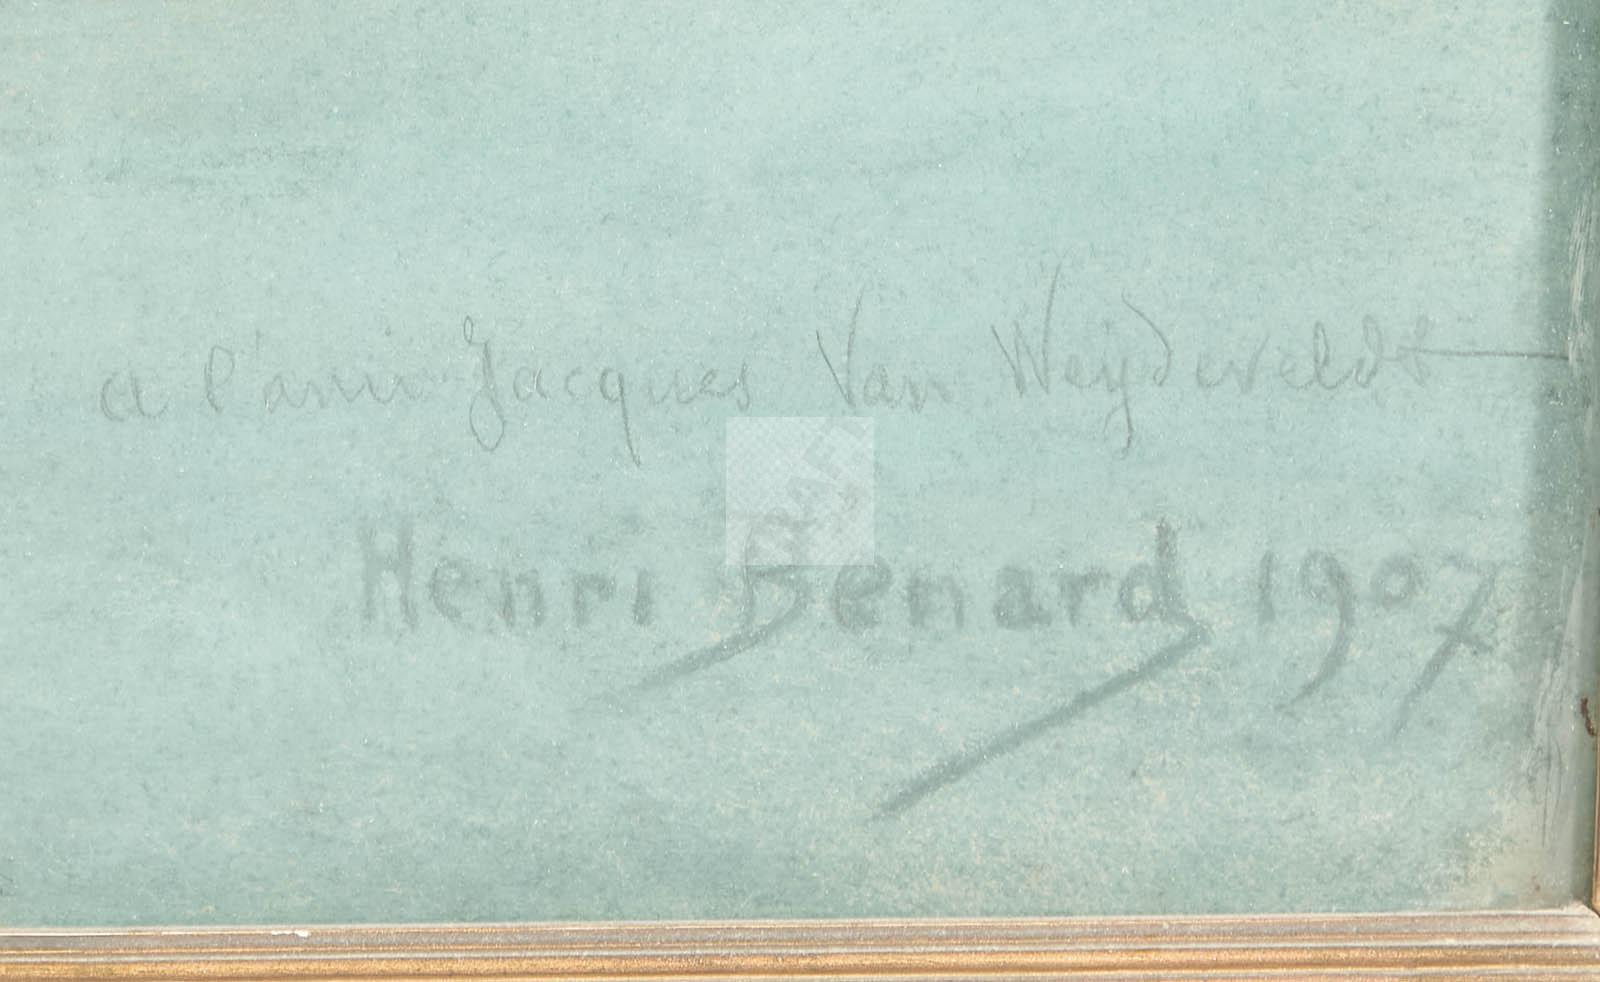 a l'ami Jacques Van Weydeveldt
Henri Benard 1907